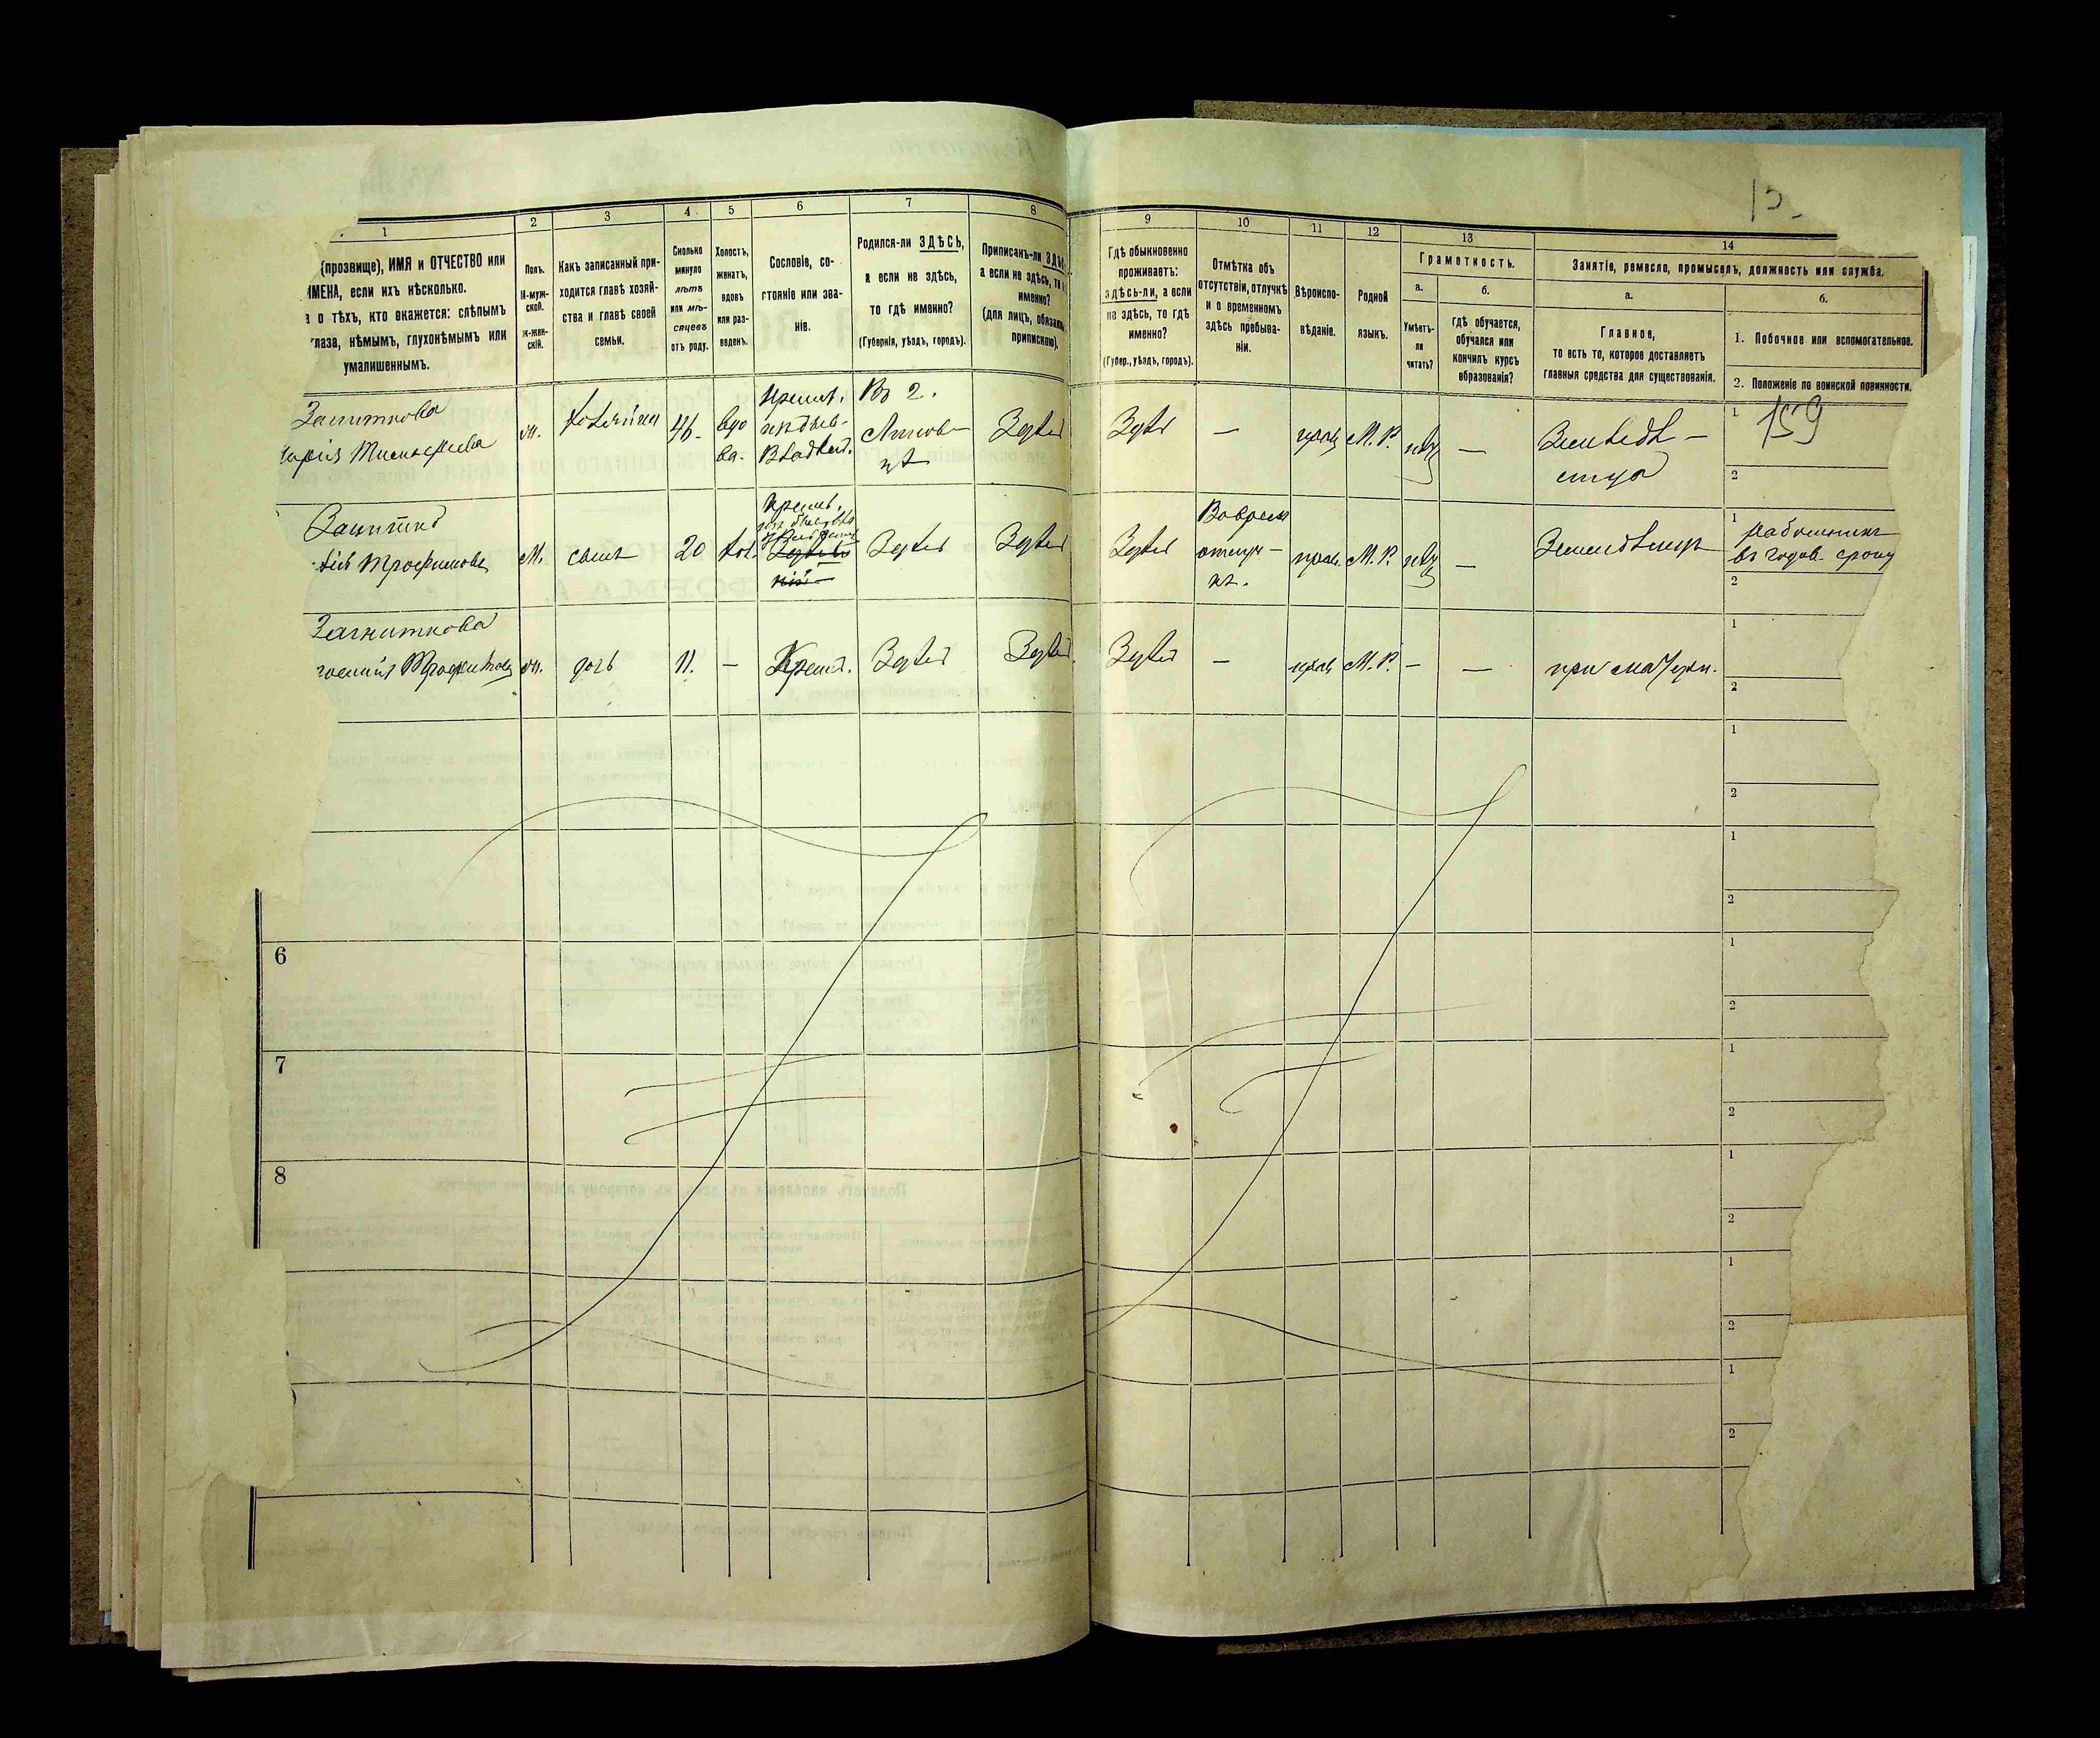 15
1
2
3
4
5
6
7
8
9
10
11
12
13
14
(прозвище), ИМЯ и ОТЧЕСТВО или
ИМЕНА, если ихъ нѣсколько.
о тѣхъ, кто окажется: слѣпымъ
глаза, нѣмымъ, глухонѣмымъ или
умалишеннымъ.
Полъ.
М-муж-
ской.
Ж-жен-
скій.
Какъ записанный при-
ходится главѣ хозяй-
ства и главѣ своей
семьи.
Сколько
минуло
лѣтъ
или мѣ-
сяцевъ
отъ роду.
Холостъ,
женатъ,
вдовъ
или раз-
веденъ.
Сословіе, со-
стояніе или зва-
ніе.
Родился-ли ЗДѢСЬ,
а если не здѣсь,
то гдѣ именно?
(Губернія, уѣздъ, городъ).
Приписанъ-ли
а если не здѣсь, то
именно?
(для лицъ,
припискою).
Гдѣ обыкновенно
проживаетъ:
здѣсь-ли, а если
не здѣсь, то гдѣ
именно?
(Губер., уѣздъ, городъ).
Отмѣтка объ
отсутствіи, отлучкѣ
и о временномъ
здѣсь пребыва-
ніи.
Вѣроиспо-
вѣданіе.
Родной
языкъ.
Грамотность.
а.
Умѣетъ-
ли
читать?
б.
гдѣ обучается,
обучался или
кончилъ курсъ
образованія?
Занятіе, ремесло, промыселъ, должность или служба.
а.
Главное,
то есть то, которое доставляетъ
главныя средства для существованія.
б.
1. Побочное или вспомогательное.
2. Положеніе по воинской повинности.
Тимофеева
хозяйка
46
вдо
ва.
Крест.
Въ с.
Здѣсь
Здѣсь
—
прав
М. Р.
—
Земледѣ-
лица
1
159
2
Трофимовъ
М.
сынъ
20
хол.
Крест.
Здѣсь
Здѣсь
Здѣсь
отлуч-
кѣ.
прав.
М. Р.
—
Земледѣлецъ
1
работникъ
въ годов. сроку
2
Загниткова
Трофимова
дочь
11.
—
Крест.
Здѣсь
Здѣсь
Здѣсь
—
прав
М. Р.
—
—
при матери.
1
2
1
2
1
2
6
1
2
7
1
2
8
1
2
1
2
1
2